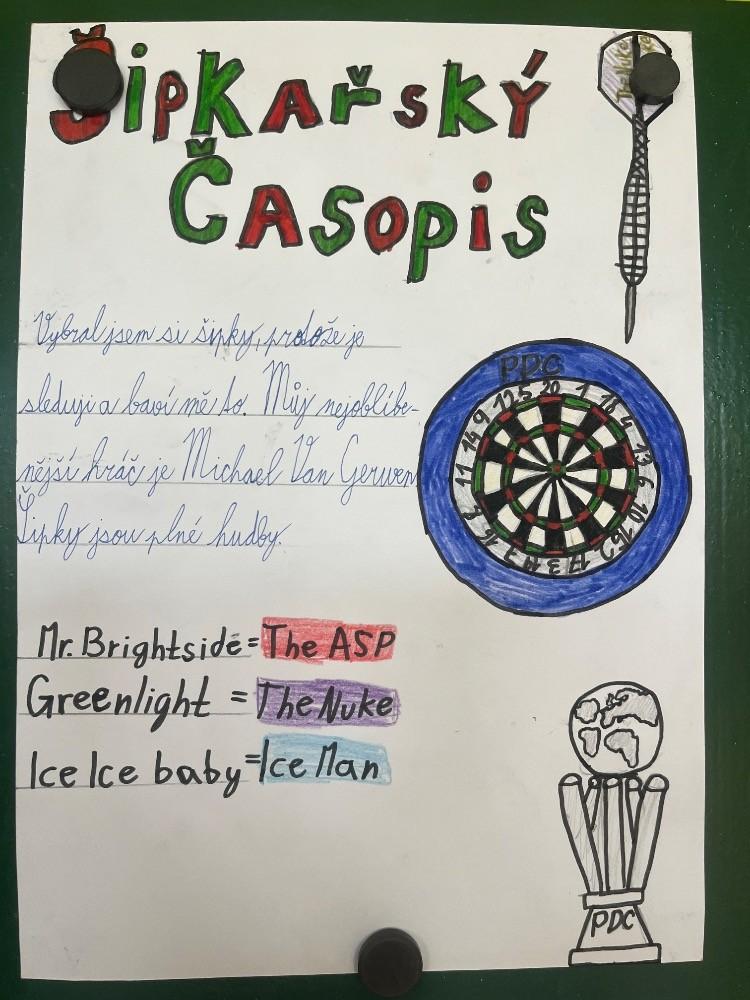 Šipkařský
Časopis
The Nuke
Vybral jsem si šipky, protože je
sleduji a baví mě to. Můj nejoblíbe-
nější hráč je Michael Van Gerwen
Šipky jsou plné hudby.
PDC
20 1 18 4 13 6 10 15 2 17 3 19 7 16 8 11 14 9 12 5
Mr. Brightside = The ASP
Greenlight = The Nuke
Ice Ice baby = Ice Man
PDC